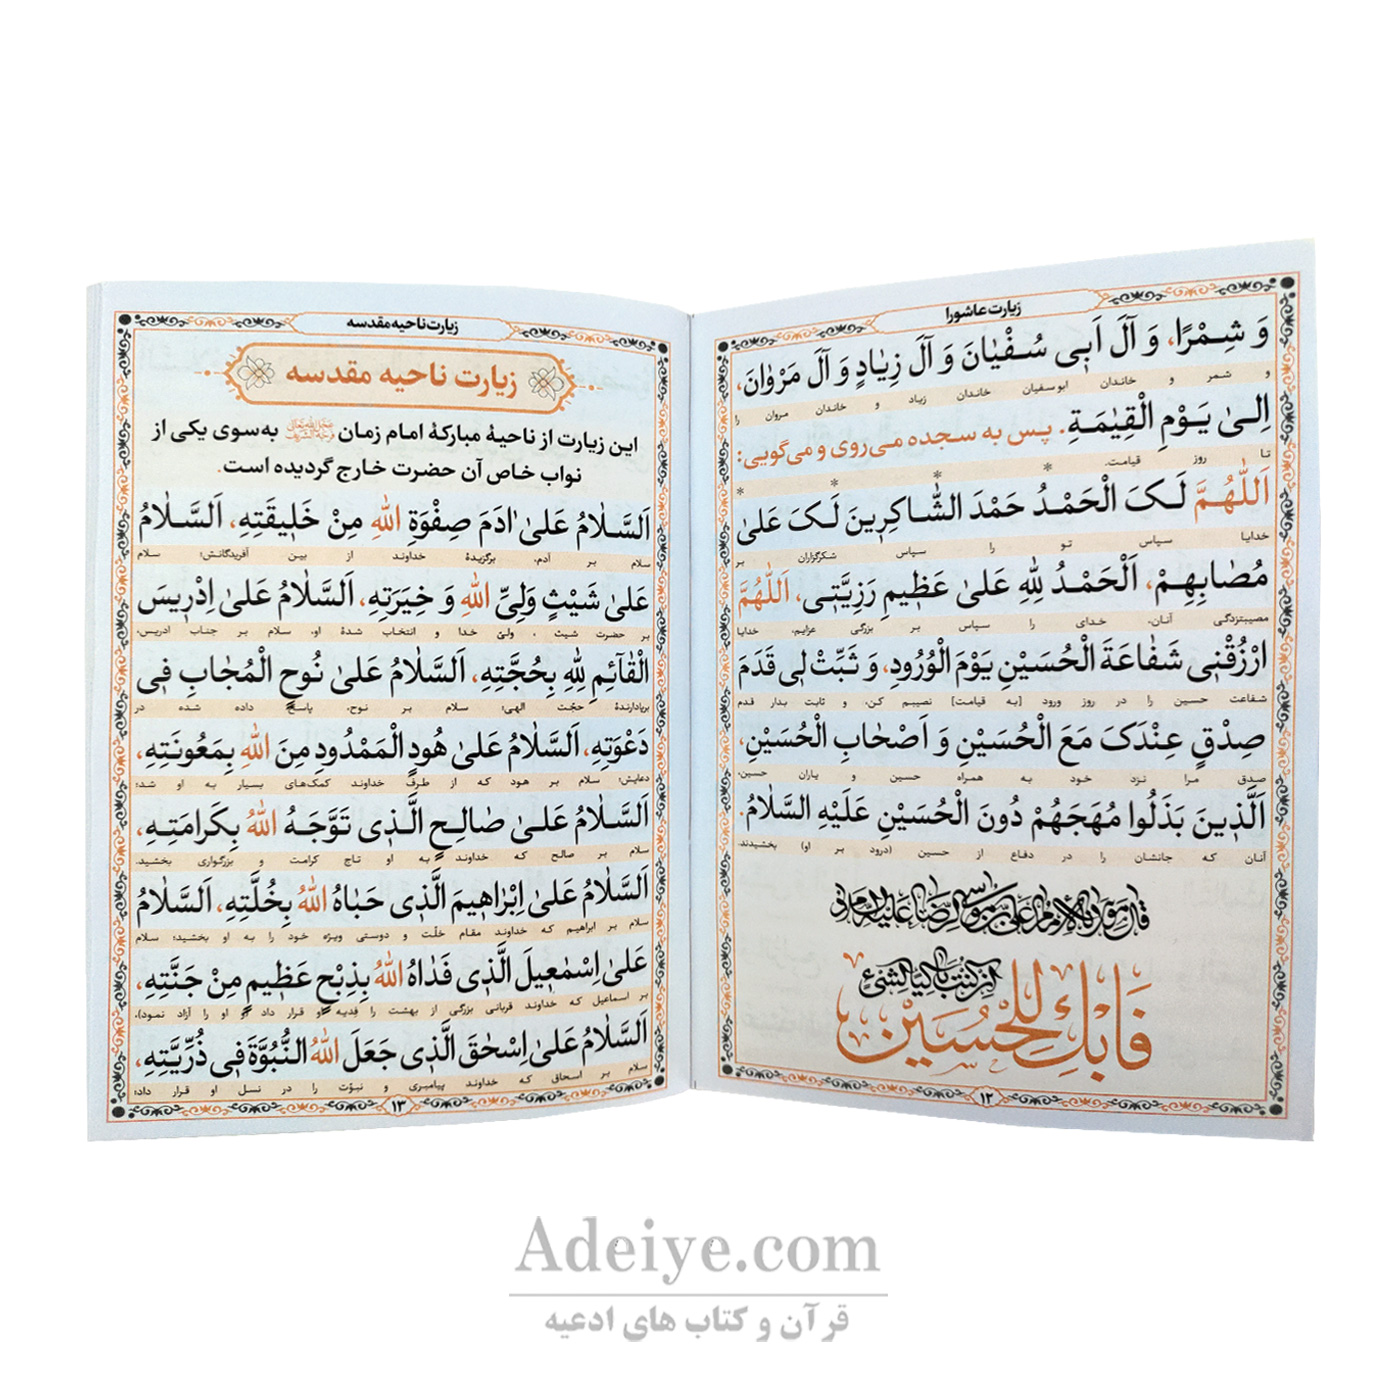 زیارت عاشورا
وَ شِـمْرًا، وَ آلَ اَبی سُـفْیٰانَ وَ آلَ زِیٰادٍ وَ آلَ مَرْوٰانَ،
و شمر و خاندان ابوسفیان خاندان زیاد و خاندان مروان را
اِلیٰ یَـوْمِ الْقِیٰمَـةِ. پـس به سـجده مـی‌روی و می‌گویی:
تا روز قیامت.
* * * *
اَللّٰهُـمَّ لَـکَ الْحَمْـدُ حَمْدَ الشّٰـاکِرِینَ لَـکَ عَلیٰ
خدایا سپاس تو را سپاس شکرگزاران بر
مُصٰابِهِـمْ، اَلْحَمْـدُ لِلّٰهِ عَلیٰ عَظِیمِ رَزِیَّتی، اَللّٰهُمَّ
مصیبتزدگی آنان، خدای را سپاس بر بزرگی عزایم، خدایا
ارْزُقْنی شَفٰاعَةَ الْحُسَیْنِ یَوْمَ الْوُرُودِ، وَ ثَبِّتْ لی قَدَمَ
شفاعت حسین را در روز ورود [به قیامت] نصیبم کن، و ثابت بدار قدم
صِدْقٍ عِنْدَکَ مَعَ الْحُسَیْنِ وَ اَصْحٰابِ الْحُسَیْنِ،
صدق مرا نزد خود به همراه حسین و یاران حسین،
اَلَّذِینَ بَذَلُوا مُهَجَهُمْ دُونَ الْحُسَیْنِ عَلَیْهِ السَّلٰامُ.
آنان که جانشان را در دفاع از حسین (درود بر او) بخشیدند.
فَابْكِ لِلْحُسَیْن
۱۲
زیارت ناحیه مقدسه
زیارت ناحیه مقدسه
این زیارت از ناحیهٔ مبارکهٔ امام زمان به‌سوی یکی از
نواب خاص آن حضرت خارج گردیده است.
اَلسَّـلٰامُ عَلیٰ اٰدَمَ صِفْوَةِ اللهِ مِنْ خَلِیقَتِهِ، اَلسَّـلٰامُ
سلام بر آدم، برگزیدهٔ خداوند از بین آفریدگانش؛ سلام
عَلیٰ شَیْثٍ وَلِیِّ اللهِ وَ خِیَرَتِهِ، اَلسَّلٰامُ عَلیٰ اِدْرِیسَ
بر حضرت شیث ، ولیّ خدا و انتخاب شدهٔ او، سلام بر جناب ادریس،
الْقٰآئِمِ لِلّٰهِ بِحُجَّتِهِ، اَلسَّلٰامُ عَلیٰ نُوحٍ الْمُجٰابِ فی
برپادارندهٔ حجّت الهی؛ سلام بر نوح، پاسخ داده شده در
دَعْوَتِهِ، اَلسَّلٰامُ عَلیٰ هُودٍ الْمَمْدُودِ مِنَ اللهِ بِمَعُونَتِهِ،
دعایش؛ سلام بر هود که از طرف خداوند کمک‌های بسیار به او شد؛
اَلسَّـلٰامُ عَلـیٰ صٰالِـحٍ الَّـذی تَوَّجَـهُ اللهُ بِکَرامَتِـهِ،
سلام بر صالح که خداوند به او تاج کرامت و بزرگواری بخشید.
اَلسَّلٰامُ عَلیٰ اِبْرٰاهِیمَ الَّذی حَبٰاهُ اللهُ بِخُلَّتِهِ، اَلسَّلٰامُ
سلام بر ابراهیم که خداوند مقام خلّت و دوستی ویژه خود را به او بخشید؛ سلام
عَلیٰ اِسْمٰعِیلَ الَّذی فَدٰاهُ اللهُ بِذِبْحٍ عَظِیمٍ مِنْ جَنَّتِهِ،
بر اسماعیل که خداوند قربانی بزرگی از بهشت را فِدیه او قرار داد (و او را آزاد نمود)،
اَلسَّلٰامُ عَلیٰ اِسْحٰقَ الَّذی جَعَلَ اللهُ النُّبُوَّةَ فی ذُرِّیَّتِهِ،
سلام بر اسحاق که خداوند پیامبری و نبوّت را در نسل او قرار داد؛
۱۳
Adeiye.com
قرآن و کتاب های ادعیه